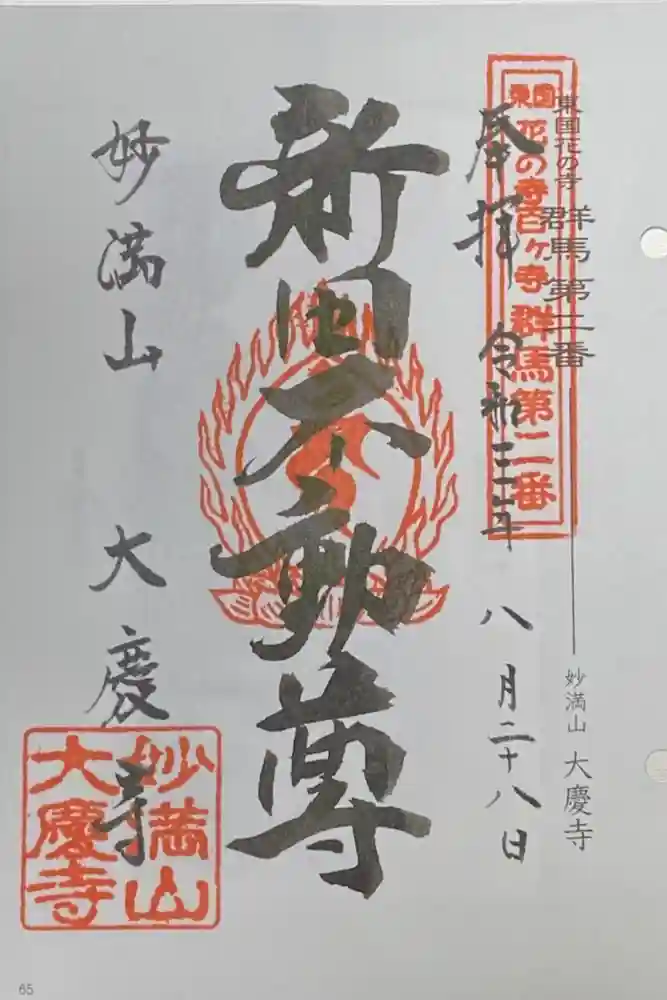 東国花の寺 群馬第二番
妙満山 大慶寺
東国花の寺百ヶ寺群馬第二番
奉拝 令和三年 八月二十八日
新田不動尊
妙満山 大慶寺
妙満山
大慶寺
65